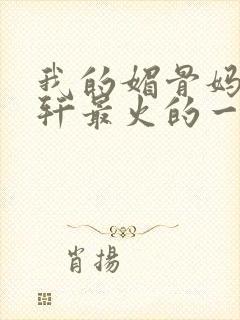 我的媚骨妈
轩最火的一
肖揚